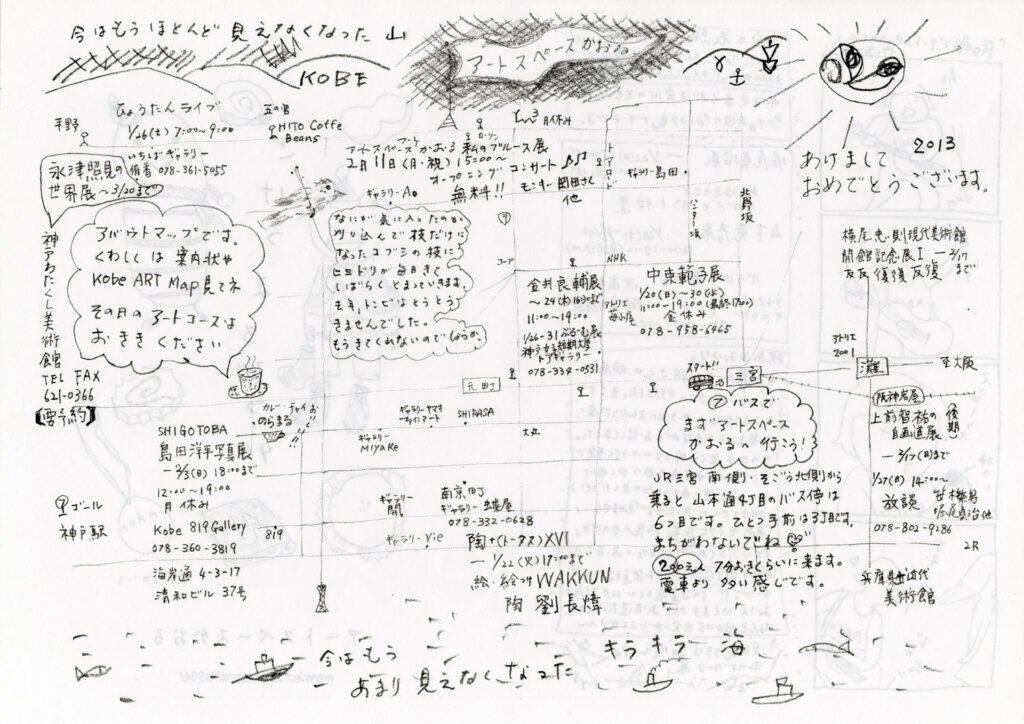 今はもうほとんど見えなくなった山
KOBE
アートスペースかおる
2013
あけまして
おめでとうございます。
平野
ひょうたんライブ
1/26(土) 7:00~9:00
五の宮
HITO Coffe
Beans
いちばギャラリー
侑香 078-361-5055
永津照見の
世界展~3/20まで
神戸わたくし美術館
TEL FAX
621-0366
【要予約】
アバウトマップです。
くわしくは案内状や
Kobe ART Map見てネ
その日のアートコースは
おききください
アートスペースかおる 私のブルース展
2月11日(月・祝) 15:00~
オープニングコンサート
無料!!
モンキー岡田さん
他
ローソン
月休み
トアロード
ギャラリー島田
北野坂
ハンター坂
ギャラリーAo
なにが気に入ったのか
刈り込んで枝だけに
なったコブシの枝に
ヒヨドリが毎日きて
しばらくとまっていきます。
去年、トンビはとうとう
きませんでした。
もうきてくれないのでしょうか。
コープ
NHK
金井良輔展
~24(木)16:30まで
11:00~19:00
1/26-31 ぶるーむ展
神戸女子短期大学
トアギャラリー
078-334-0531
中東範子展
1/20(日)~30(水)
11:00~19:00(最終17:00)
アトリエ
苺小屋
金休み
078-958-6465
横尾忠則現代美術館
開館記念展Ⅰ ―2/17まで
反反復復反復
アトリエ
2001
灘
至大阪
元町
スタート!!
三宮
阪神岩屋
⑦バスで
まずアートスペース
かおるへ行こう!
上前智祐の
自画道展
後期
―2/17(日)まで
1/27(日) 14:00~
放談
堀尾貞治他
078-802-9286
2R
兵庫県立近代
美術館
カレー チャイ
のらまる
SHIGOTOBA
島田洋平写真展
―2/3(日) 18:00まで
12:00~19:00
月休み
Kobe 819Gallery
078-360-3819
819
海岸通 4-3-17
清和ビル 37号
ゴール
神戸駅
ギャラリーヤマキ
ファインアート
SHIRASA
ギャラリー
MIYAKE
大丸
ギャラリー
開
南京町
ギャラリー蝶屋
078-332-0628
ギャラリーVie
陶+(トータス)XVI
―1/22(火)17:00まで
絵・絵つけ WAKKUN
陶 劉長煒
JR三宮南側・そごう北側から
乗ると山本通4丁目のバス停は
6つ目です。ひとつ手前は3丁目です。
まちがわないでね
200えん 7分おきくらいに来ます。
電車より多い感じです。
今はもう
あまり見えなくなった
キラキラ海